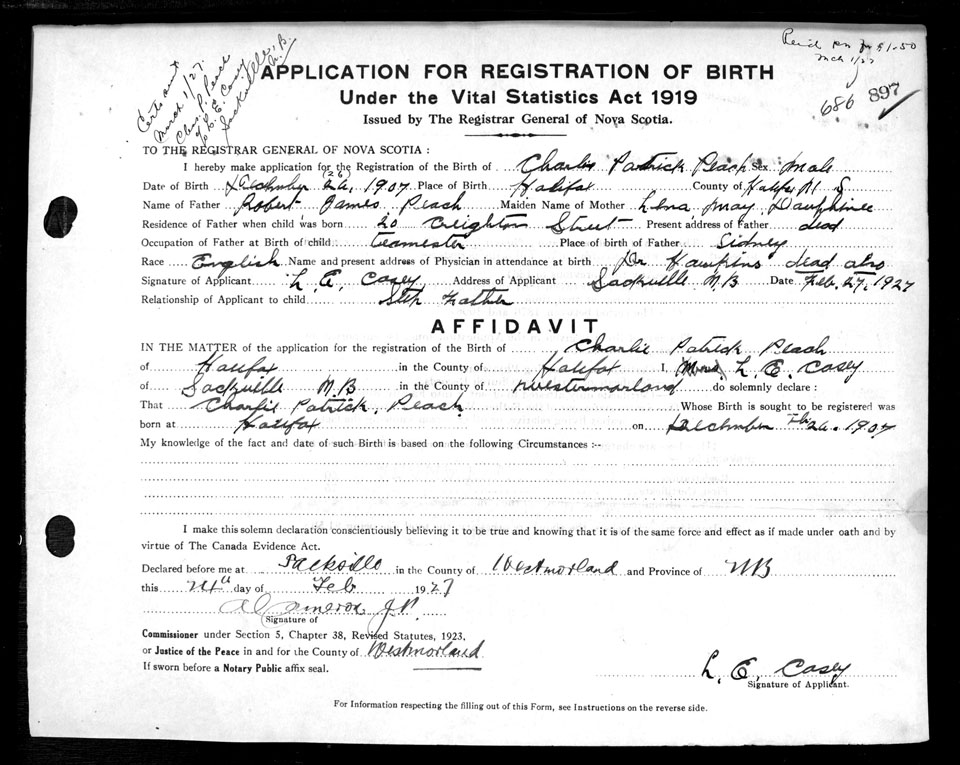 Certs sent
March 1/27.
Chas. P. Peach
% L. E. Casey
Sackville, N. B.
$1-50
Mch 1/27
686 897 ✓
APPLICATION FOR REGISTRATION OF BIRTH
Under the Vital Statistics Act 1919
Issued by The Registrar General of Nova Scotia.
TO THE REGISTRAR GENERAL OF NOVA SCOTIA :
I hereby make application for the Registration of the Birth of Charlie Patrick Peach Sex Male
(26)
Date of Birth December 26, 1907 Place of Birth Halifax County of Halifax N S
Name of Father Robert James Peach Maiden Name of Mother Lena May Dauphinee
Residence of Father when child was born 20 Creighton Street Present address of Father dead
Occupation of Father at Birth of child teamester Place of birth of Father Sidney
Race English Name and present address of Physician in attendance at birth Dr Hawkins dead also
Signature of Applicant L. E. Casey Address of Applicant Sackville N. B Date Feb. 27, 1927
Relationship of Applicant to child Step Father
AFFIDAVIT
IN THE MATTER of the application for the registration of the Birth of Charlie Patrick Peach
of Halifax in the County of Halifax I, L. E. Casey
of Sackville N B in the County of Westermorland do solemnly declare :
That Charlie Patrick Peach Whose Birth is sought to be registered was
born at Halifax on December 26. 1907
My knowledge of the fact and date of such Birth is based on the following Circumstances :--
I make this solemn declaration conscientiously believing it to be true and knowing that it is of the same force and effect as if made under oath and by
virtue of The Canada Evidence Act.
Declared before me at Sackville in the County of Westmorland and Province of NB
this day of Feb 1927
A Cameron J.P.
Signature of
Commissioner under Section 5, Chapter 38, Revised Statutes, 1923,
or Justice of the Peace in and for the County of Westmorland
If sworn before a Notary Public affix seal.
L. E. Casey
Signature of Applicant.
For Information respecting the filling out of this Form, see Instructions on the reverse side.